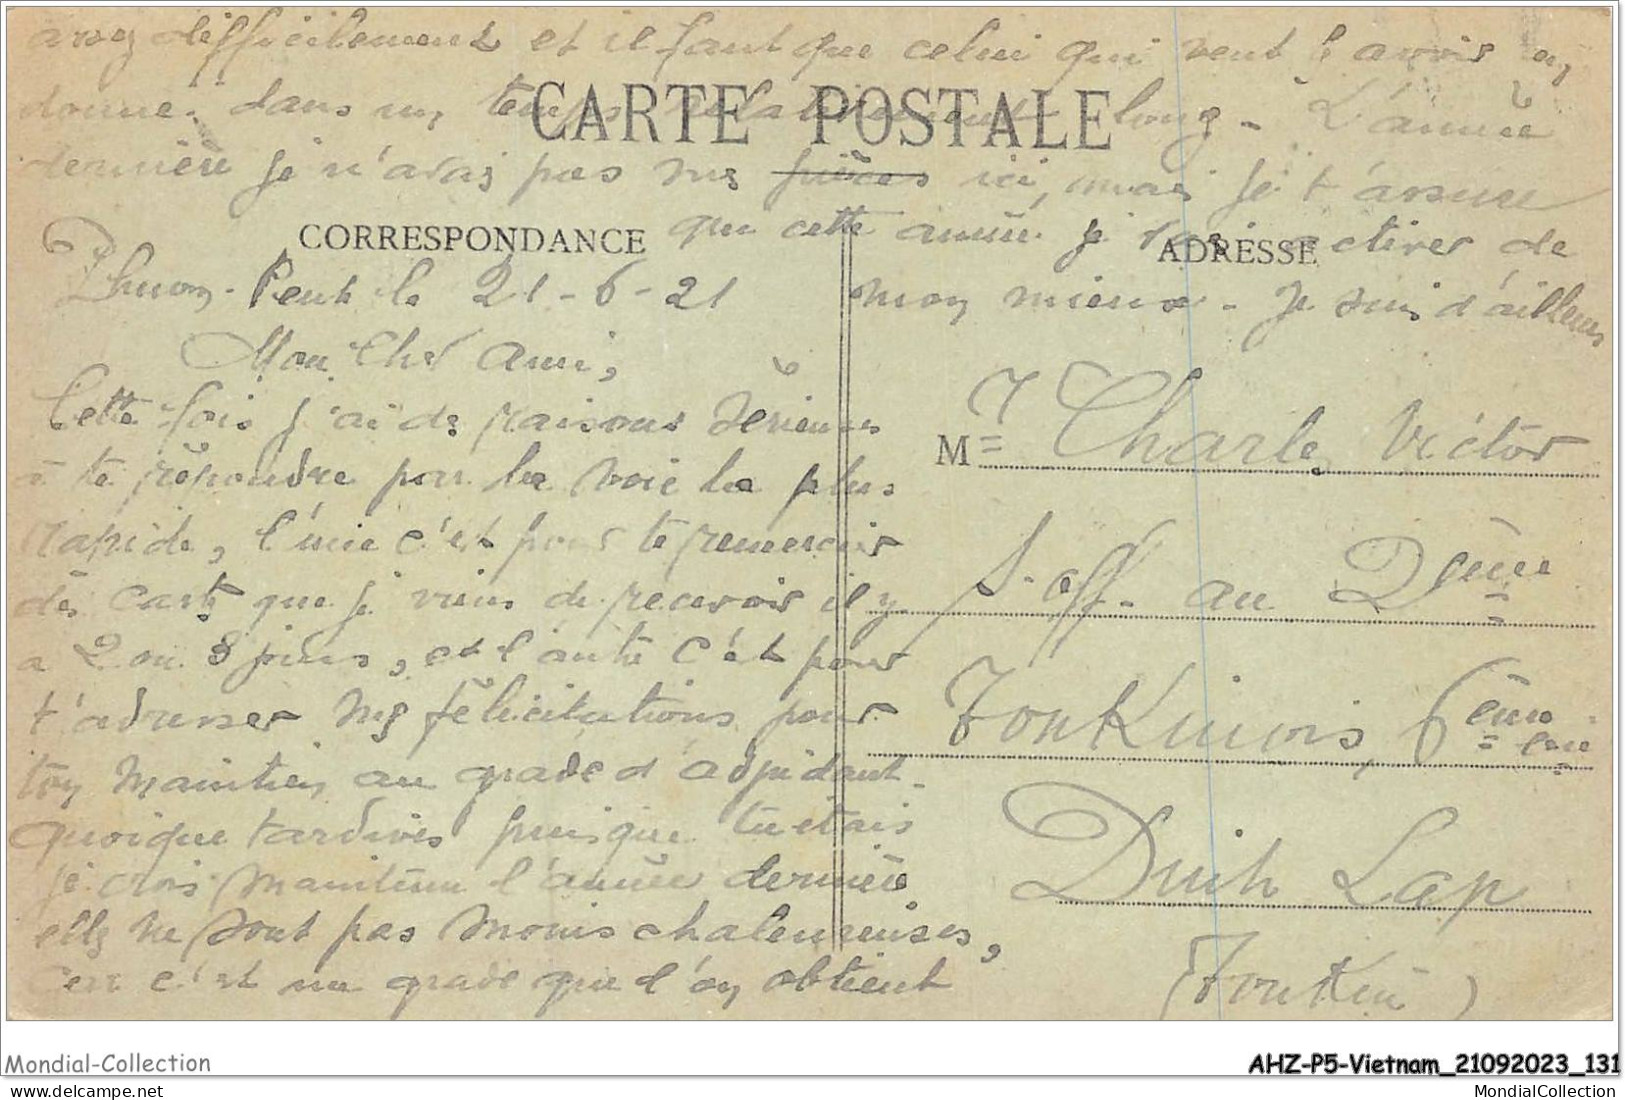 assez difficilement et il faut que celui qui veut l'avoir en
donne. dans un temps relativement long - L'année
dernière je n'avais pas mes pièces ici, mais je t'assure
que cette année je vais activer de
mon mieux - Je suis d'ailleurs
CARTE POSTALE
CORRESPONDANCE
ADRESSE
le 21-6-21
Mon Cher ami,
Cette fois j'ai des raisons sérieuses
à te répondre par la voie la plus
rapide, l'une c'est pour te remercier
des carte que je viens de recevoir il y
a 2 ou 3 jours, et l'autre c'est pour
t'adresser mes félicitations pour
ton maintien au grade d'adjudant
quoique tardives puisque tu étais
je crois maintenu l'année dernière
elles ne sont pas moins chaleureuses,
car c'est un grade que l'on obtient
M= r Charles Victor
S-off. au 2ème
Tonkinois, 6ème Cnie
Dinh Lap
(Tonkin)
Mondial-Collection
AHZ-P5-Vietnam_21092023_131
delcampe.net
MondialCollection